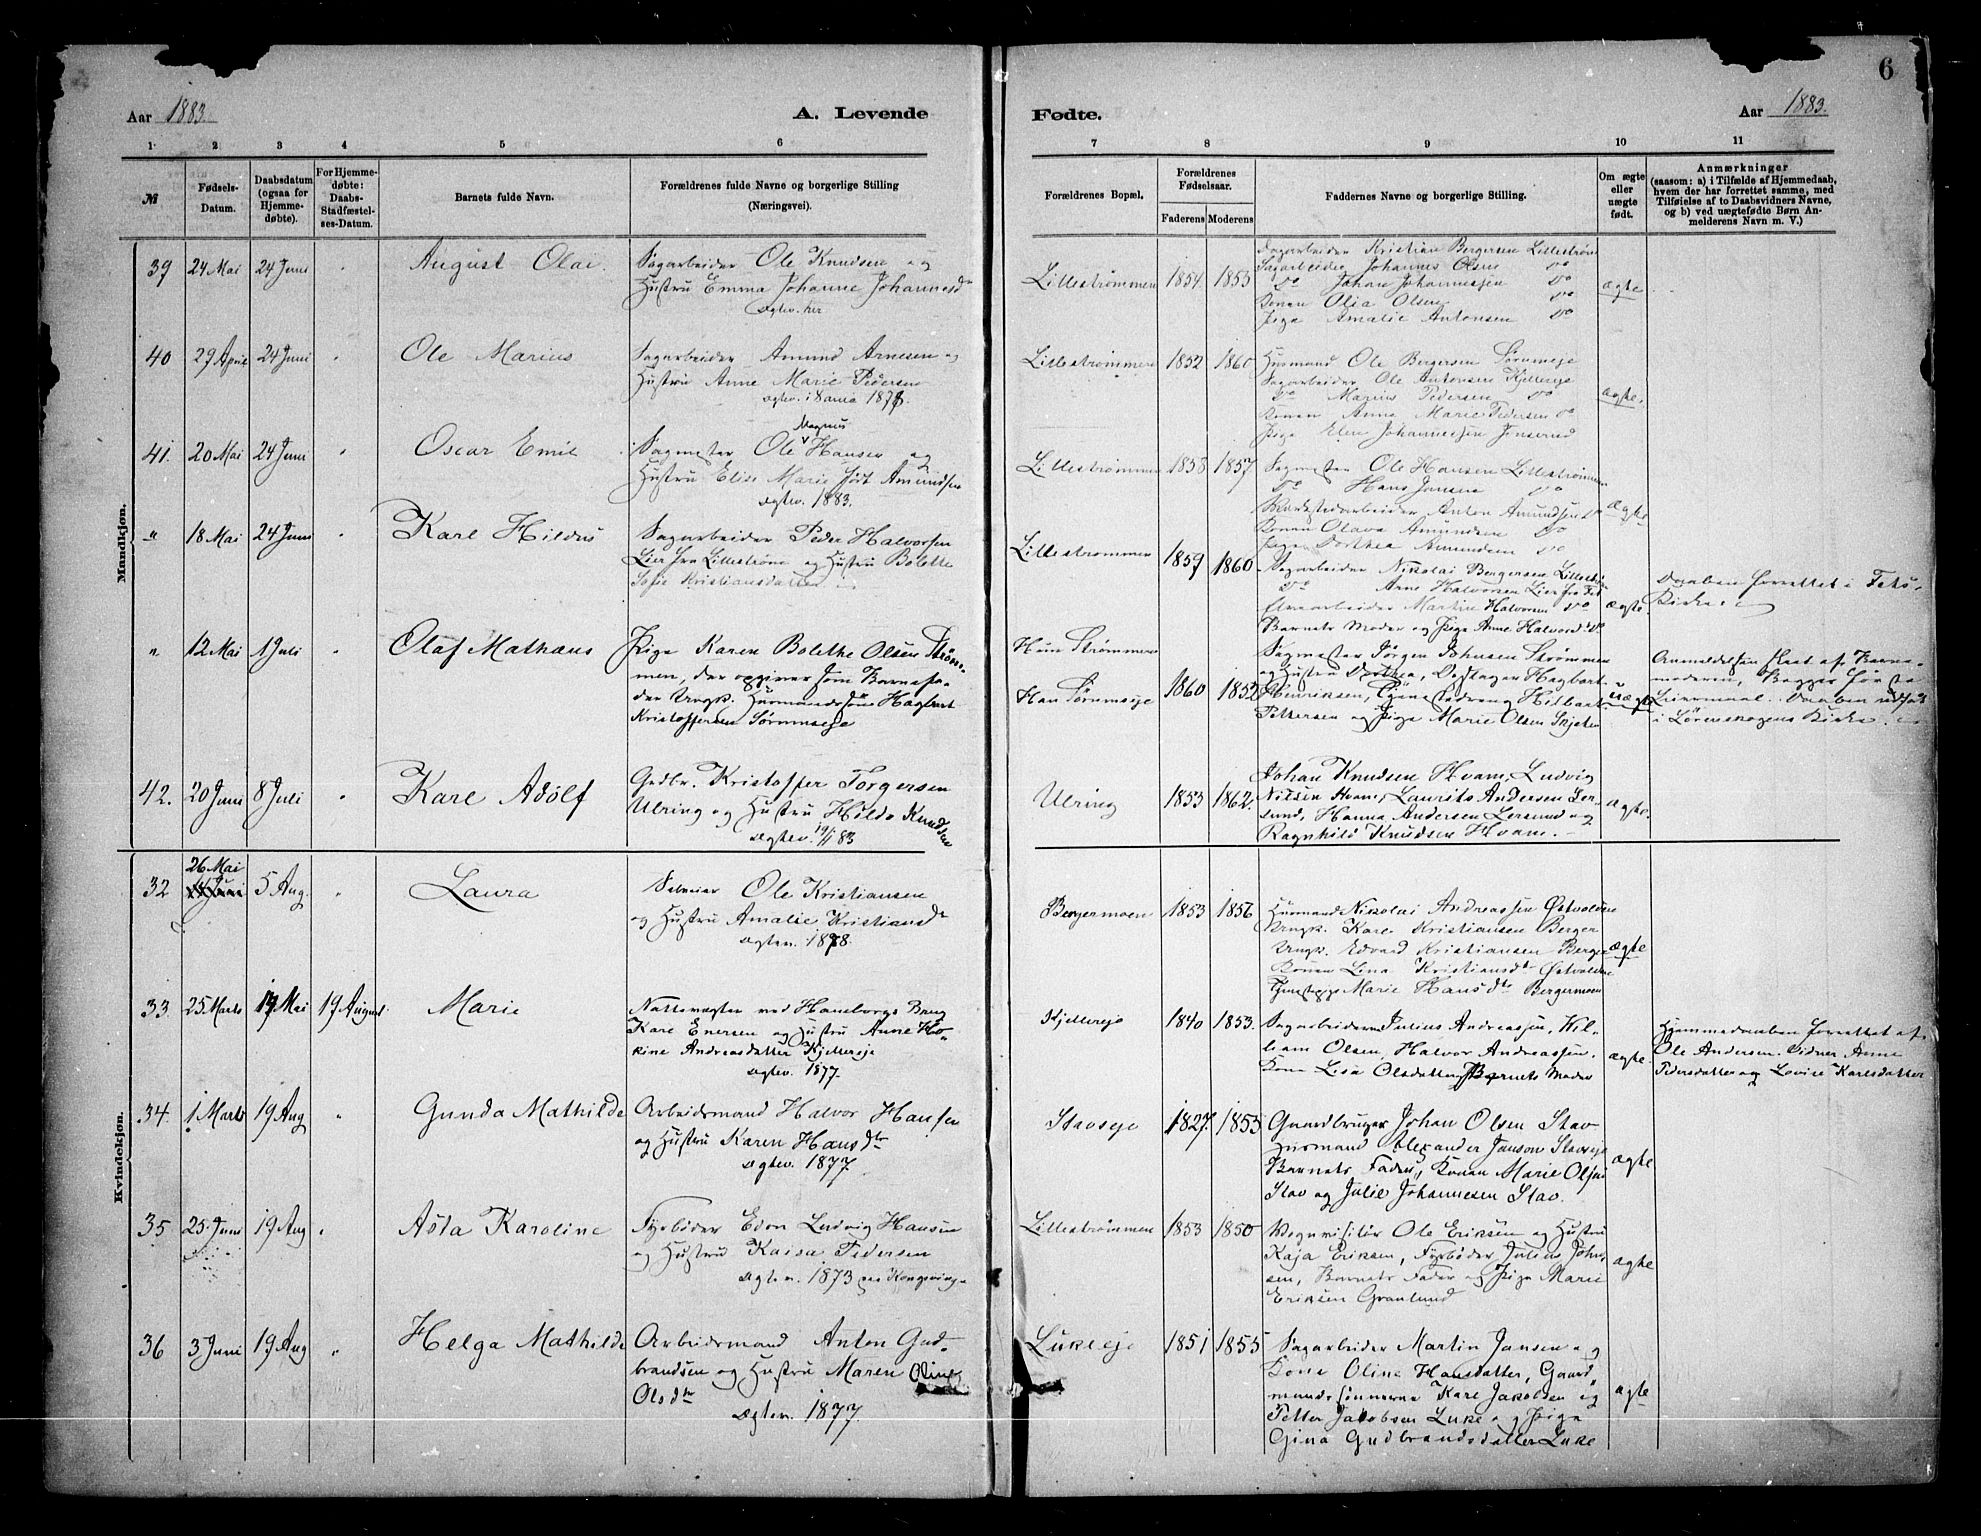 6
Aar 1883. A. Levende Fødte. Aar 1883.
1 2 3 4 5 6 7 8 9 10 11
№
Fødsels-
Datum.
Daabsdatum
(ogsaa for
Hjemme-
døbte).
For Hjemme-
døbte:
Daabs-
Stadfæstel-
ses-Datum.
Barnets fulde Navn.
Forældrenes fulde Navne og borgerlige Stilling
(Næringsvei).
Forældrenes Bopæl.
Forældrenes
Fødselsaar.
Faderens Moderens
Faddernes Navne og borgerlige Stilling.
Om ægte
eller
uægte
født.
Anmærkninger
(saasom: a) i Tilfælde af Hjemmedaab,
hvem der har forrettet samme, med
Tilføielse af to Daabsvidners Navne,
og b) ved uægtefødte Børn An-
melderens Navn m. V.)
Mandkjøn.
39 24 Mai 24 Juni " August Olai.
Sagarbeider Ole Knudsen og
Hustru Emma Johanne Johannesdr
Ægtev. her
Lillestrømmen 1854. 1853
Sagarbeider Kristian Bergersen Lillestrøm
Sagarbeider Johannes Olsen do
do Johan Johannessen do
Konen Olia Olsen do
Pige Amalie Antonsen do
ægte
40 29 April 24 Juni " Ole Marius
Sagarbeider Amund Arnesen og
Hustru Anne Marie Pedersen
Ægtev.
Lillestrømmen 1852 1860
Husmand Ole Bergersen Sørumseje
Sagarbeider Ole Antonsen Kjellereje
do Marius Pedersen do
Konen Anna Marie Pedersen do
Pige Elen Johannessen
ægte.
41. 20 Mai 24 Juni " Oscar Emil
Magnus
Sagmester Ole Hansen og
Hustru Elise Marie født Amundsen
Ægtev. 1883.
Lillestrømmen 1858 1857
Sagmester Ole Hansen Lillestrømmen
do Hans Jensen do
Værkstedarbeider Anton Amundsen do
Konen Olava Amundsen do
Pige Dorthea Amundsen do
ægte
" 18 Mai 24 Juni " Karl Hildus
Sagarbeider Peder Halvorsen
Lier fra Lillestrøm og Hustru Bolette
Sofie Kristiansdatter
Lillestrømmen 1859 1860
Sagarbeider Nikolai Bergersen Lillestrøm
do Arne Halvorsen Lier fra Fet
Elvearbeider Martin Halvorsen do
Barnets Moder og Pige Anne Halvorsd. do
ægte.
Daaben forrettet i Fets
Kirke.
" 12 Mai 1 Juli " Olaf Mathæus
Pige Karen Bolethe Olsen Strøm-
men, der opgiver som Barnefa-
der Ungk. Husmandssøn Hagbart
Kristoffersen Sørumseje
Hun Strømmen
Han Sørumseje 1860 1852
Sagmester Jørgen Johnsen Strømmen
og Hustru Dorthea, Hagbart
Henriksen, Hilbart
Pettersen og Pige Marie Olsen
uægte
Anmeldelsen skeet af Barne-
moderen,
Daaben udført
i Lørenskogens Kirke.
42. 20 Juni 8 Juli " Karl Adolf
Grdbr. Kristoffer Torgersen
Ulring og Hustru Hilda Knudsen
Ægtev. 83
Ulring 1853 1862.
Johan Knudsen Hvam, Ludvig
Nilsen Hvam, Laurits Andersen Ler-
sund, Hanna Andersen Lersund og
Ragnhild Knudsen Hvam.
ægte.
Kvindekjøn.
32 26 Mai 5 Aug. " Laura
Selveier Ole Kristiansen
og Hustru Amalie Kristiansdr
Ægtev. 1878.
Bergermoen 1853 1856
Husmand Nikolai Andreassen Østvolden
Ungk. Karl Kristiansen Berger
Ungk. Edvard Kristiansen Berger
Konen Lina Kristiansdr Østvolden
Marie Hansdtr Bergermoen
ægte
33. 25 Marts 17 Mai 19 August Marie
Nattevægter ved Haneborgs Brug
Karl Enersen og Hustru Anne Ho-
kine Andreasdatter Kjellereje
Ægtev. 1877.
Kjellereje 1840 1853.
Sagarbeiderne Julius Andreassen, Wil-
liam Olsen, Halvor Andreassen.
Kone Lisa Olsdatter, Barnets Moder
ægte.
Hjemmedaaben forrettet af
Ole Andersen. Vidner Anne
Pedersdatter og Lovise Karlsdatter
34. 1 Marts 19 Aug " Gunda Mathilde
Arbeidsmand Halvor Hansen
og Hustru Karen Hansdtr
Ægtev. 1877.
Stavseje 1827. 1853
Gaardbruger Johan Olsen Stav
Husmand Alexander Jansen Stavseje
Barnets Fader, Konen Marie Olsen
Stav og Julie Johannesen Stav.
ægte
35 25. Juni 19 Aug " Asta Karoline
Fyrbøder Edon Ludvig Hansen
og Hustru Kaisa Pedersen
Ægtev. 1873 paa Kongsvinger
Lillestrømmen 1853 1850
Vognvisitør Ole Eriksen og Hustru
Kaja Eriksen, Fyrbøder Julius John-
sen, Barnets Fader og Pige Marie
Eriksen Granlund
ægte
36 3 Juni 19 Aug " Helga Mathilde
Arbeidsmand Anton Gud-
brandsen og Hustru Maren
Olsdtr
Ægtev. 1877.
Lukeeje 1851 1855
Sagarbeider Martin Jansen og
Kone Oline Hansdatter, Gaard-
mandssønnerne Karl Jakobsen og
Petter Jakobsen Luke og Pige
Gina Gudbrandsdatter Luke
ægte